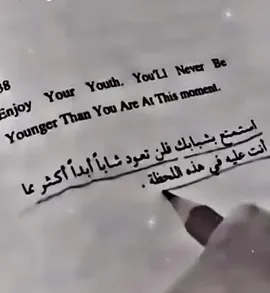 38
Enjoy Your Youth. You'Ll Never Be
Younger Than You Are At This moment.
استمتع بشبابك فلن تعود شاباً أبداً أكثر مما
أنت عليه في هذه اللحظة .